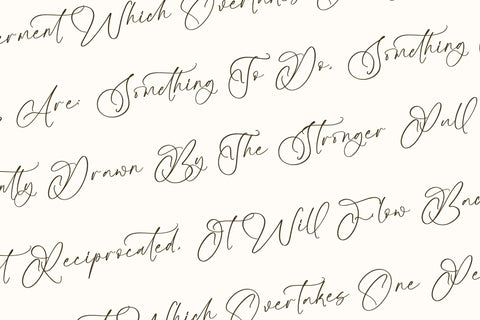 erment Which Overtakes
Are: Something To Do, Something
ntly Drawn By The Stronger Pull
t Reciprocated, It Will Flow Bac
t Which Overtakes One Pe